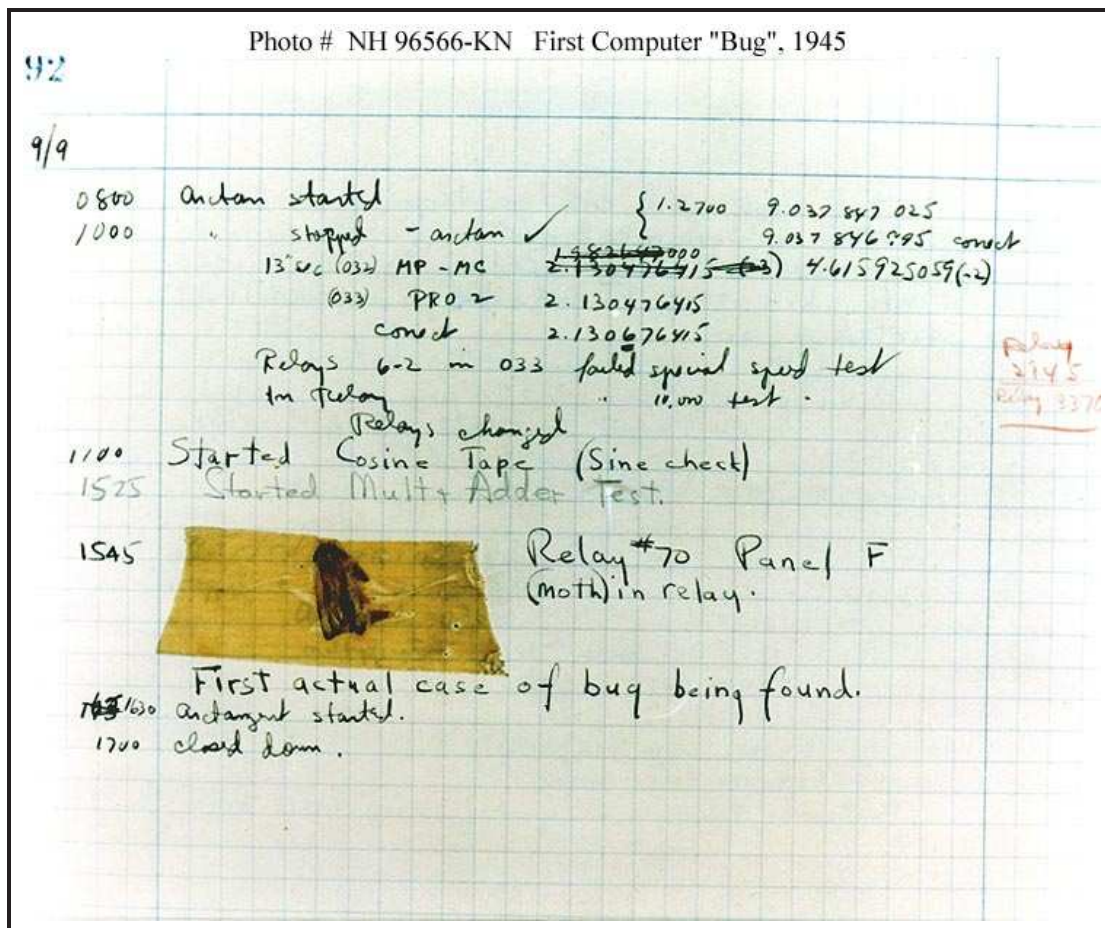 Photo # NH 96566-KN First Computer "Bug", 1945
92
9/9
0800 Arctan started { 1.2700 9.037 847 025
1000 " stopped - arctan ✓ 9.037 846 995 correct
1.982647000
13"uc (032) MP - MC 2.130476415 (-3) 4.615925059(-2)
(033) PRO 2 2.130476415
correct 2.130676415
Relays 6-2 in 033 failed special speed test
In Relay " 10,000 test .
Relay
2145
Relay 3370
Relays changed
1100 Started Cosine Tape (Sine check)
1525 Started Mult + Adder Test.
1545 Relay #70 Panel F
(moth) in relay.
First actual case of bug being found.
1630 arctangent started.
1700 closed down .